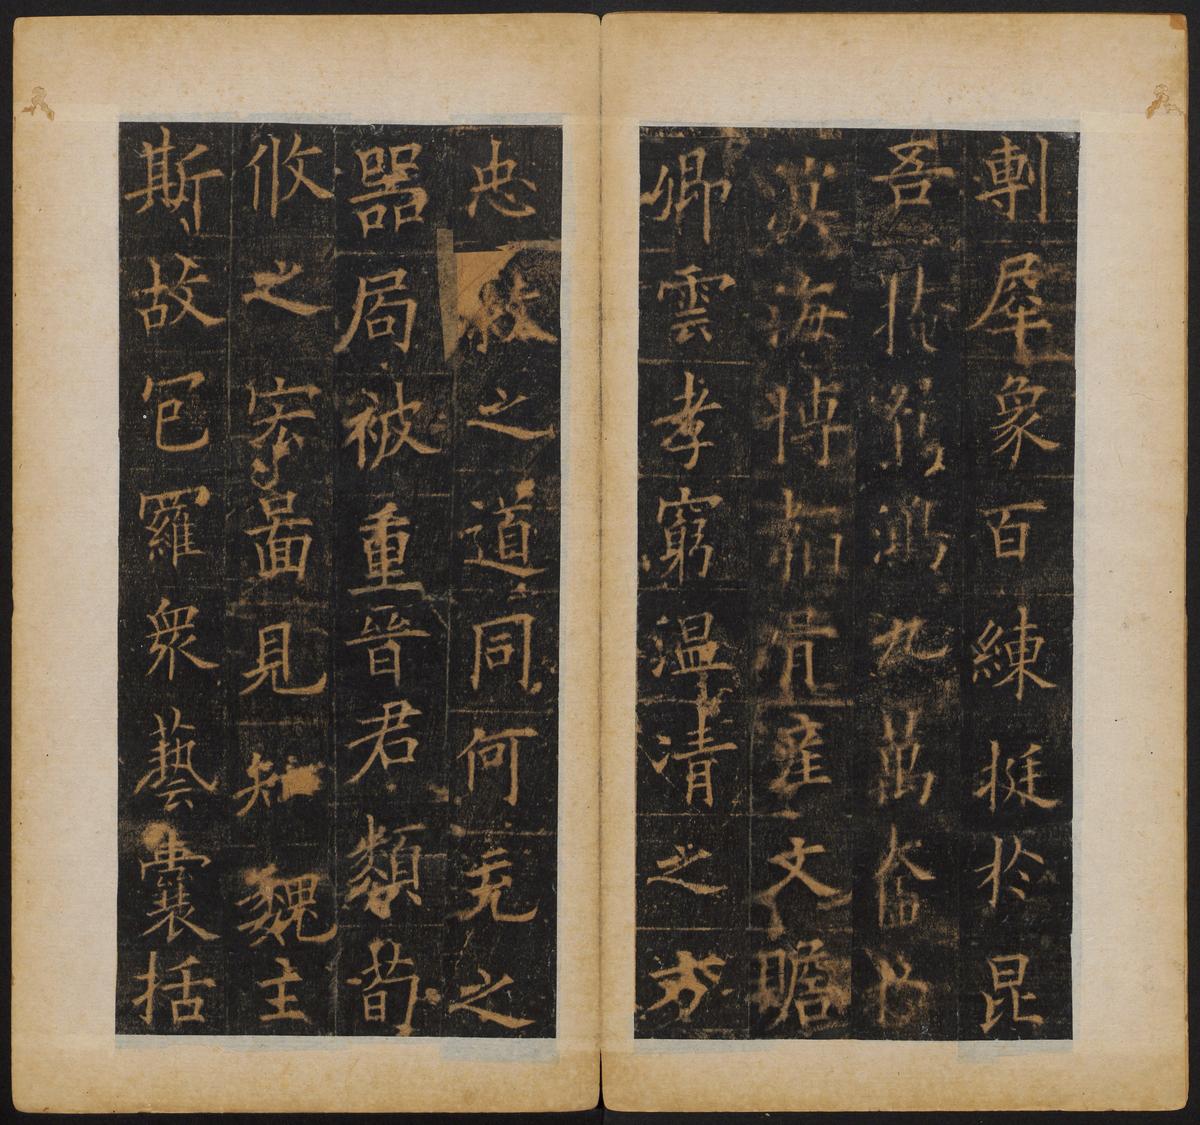 剸犀象百練挺於昆
吾鴻九萬奮
海博產文瞻
卿雲孝窮溫清之方
忠之道同何充之
器局被重晉君類荀
攸之宏圖見知魏主
斯故包羅眾藝囊括